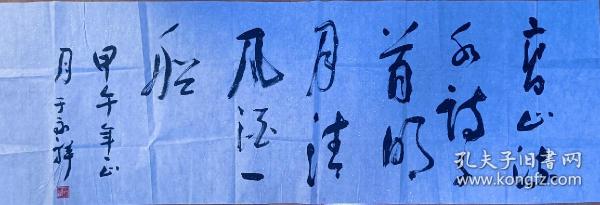 高山流
水诗千
首明
月清
风酒一
船
甲午年正
月于永祥
孔夫子旧书网
www.kongfz.com